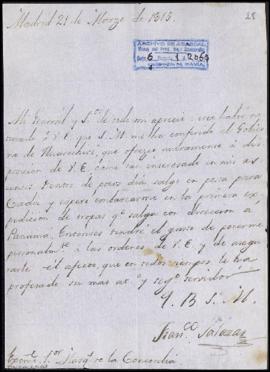 Madrid 21 de Marzo de 1815.
28
ARCHIVO DE ABASCAL
Mi General y S.or de todo mi aprecio:
V.E. que S.M. me ha confiado el Gobierno
de que ofrezco nuevamente á disposicion
de V.E. como tan interesado en mis
Dentro de pocos dias salgo en posta para
Cadiz y espero embarcarme en la primera expedicion
de tropas q.e salga con direccion á
Panamá. Entonces tendré el gusto de ponerme
personalm.te á las ordenes de V.E. y de asegurarle
el afecto, que en todos tiempos le ha
profesado su mas at.to y seg.o servidor
Q. B. S. M.
Fran.co Salazar
Exmo. S.or Marq.s de la Concordia